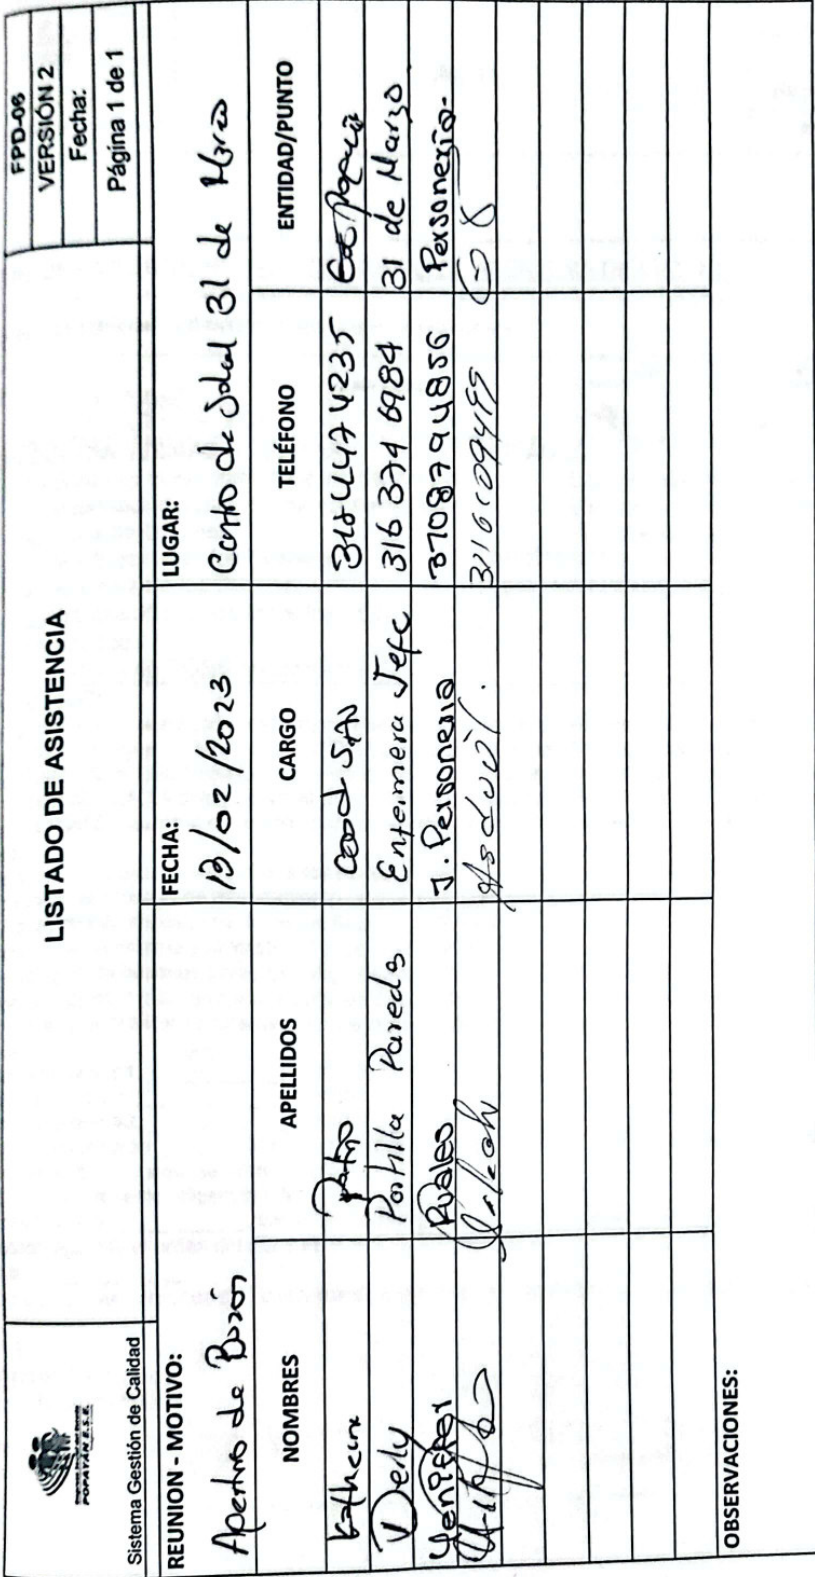 POPAYÁN E.S.E.
Sistema Gestión de Calidad
LISTADO DE ASISTENCIA
FPD-06
VERSIÓN 2
Fecha:
Página 1 de 1
REUNION - MOTIVO:
Apertura de Buzón
FECHA:
13/02/2023
LUGAR:
Centro de Salud 31 de Marzo
NOMBRES APELLIDOS CARGO TELÉFONO ENTIDAD/PUNTO
Katherine Patiño 3184474235
Derly Portilla Paredes Enfermera Jefe 316 374 6984 31 de Marzo
Yeniffer Ruales J. Personeria 3708794856 Personeria.
OBSERVACIONES: